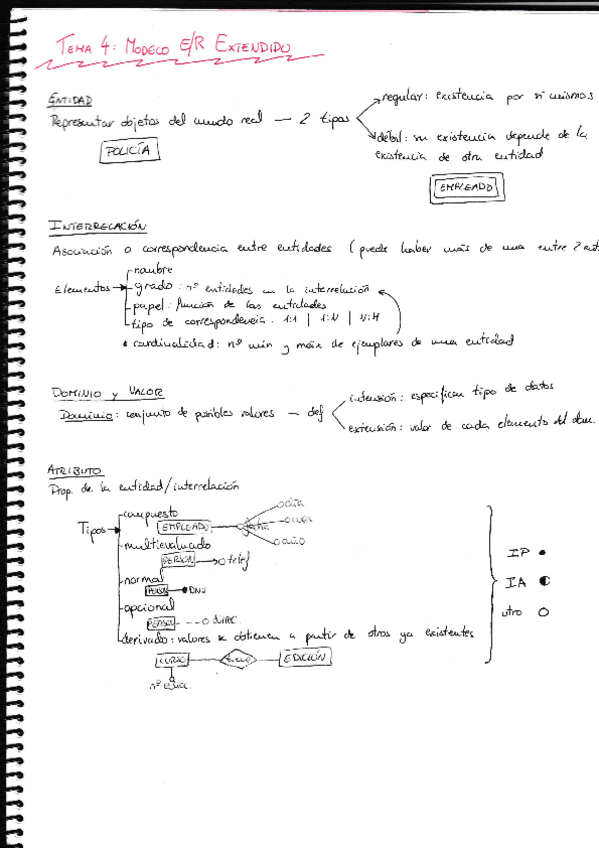 TEMA 4: MODELO E/R EXTENDIDO
ENTIDAD
Representar objetos del mundo real — 2 tipos
regular: existencia por si mismos
débil: su existencia depende de la
existencia de otra entidad
POLICÍA
EMPLEADO
INTERRELACIÓN
Asociación o correspondencia entre entidades (puede haber más de una entre 2 enti
Elementos
nombre
grado: nº entidades en la interrelación
papel: función de las entidades
tipo de correspondencia: 1:1 | 1:N | N:M
* cardinalidad: nº min y máx de ejemplares de una entidad
DOMINIO y VALOR
Dominio: conjunto de posibles valores — def
intensión: especifican tipo de datos
extensión: valor de cada elemento del dom.
ATRIBUTO
Prop. de la entidad/interrelación
Tipos
compuesto
EMPLEADO fecha
día
mes
año
multievaluado
PERSON telef
normal
PERSON DNI
opcional
PERSON direc.
derivado: valores se obtienen a partir de otros ya existentes
CURSO tiene EDICIÓN
nº edic.
IP
IA
otro